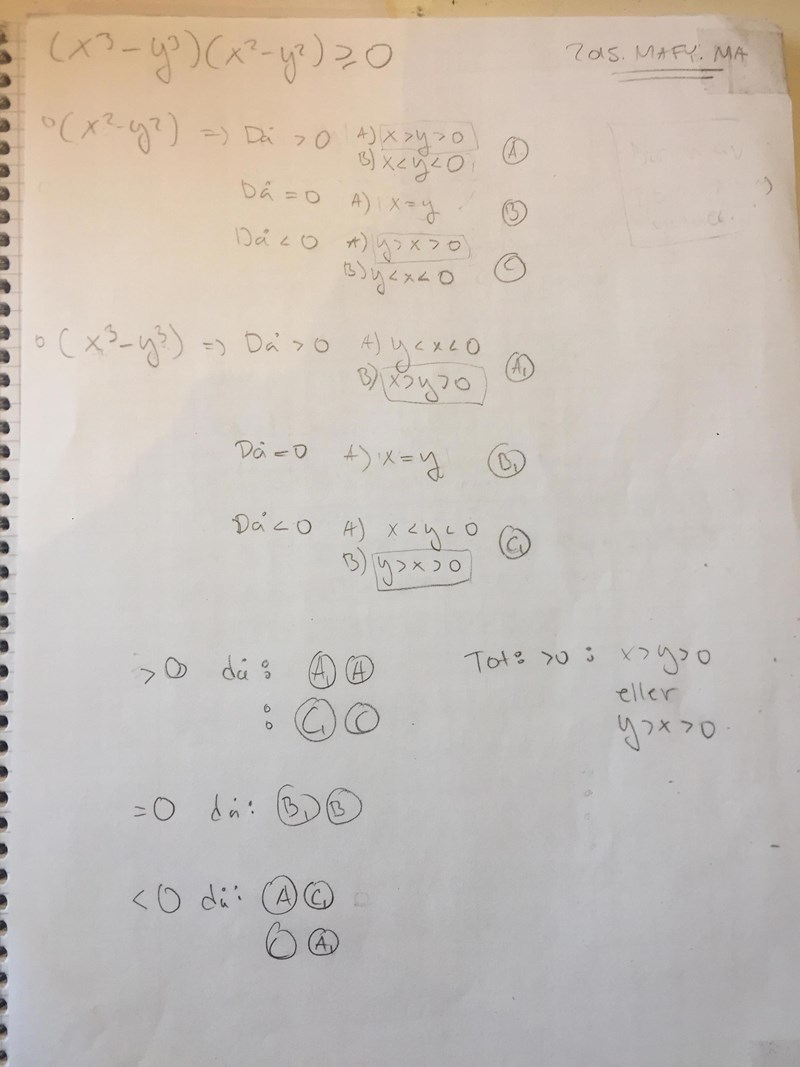 (x³-y³)(x²-y²) ≥ 0
2015. MAFY. MA
(x²-y²) => Då > 0 A) x>y>0 Ⓐ
B) x<y<0
Då = 0 A) x=y Ⓑ
Då < 0 A) y>x>0
B) y<x<0 Ⓒ
(x³-y³) => Då > 0 A) y<x<0
B) x>y>0 (A₁)
Då = 0 A) x=y (B₁)
Då < 0 A) x<y<0 (C₁)
B) y>x>0
>0 då: (A₁) (A)
: (C₁) (C)
Tot: >0: x>y>0
eller
y>x>0
=0 då: (B₁) (B)
<0 då: (A) (C₁)
(C) (A₁)